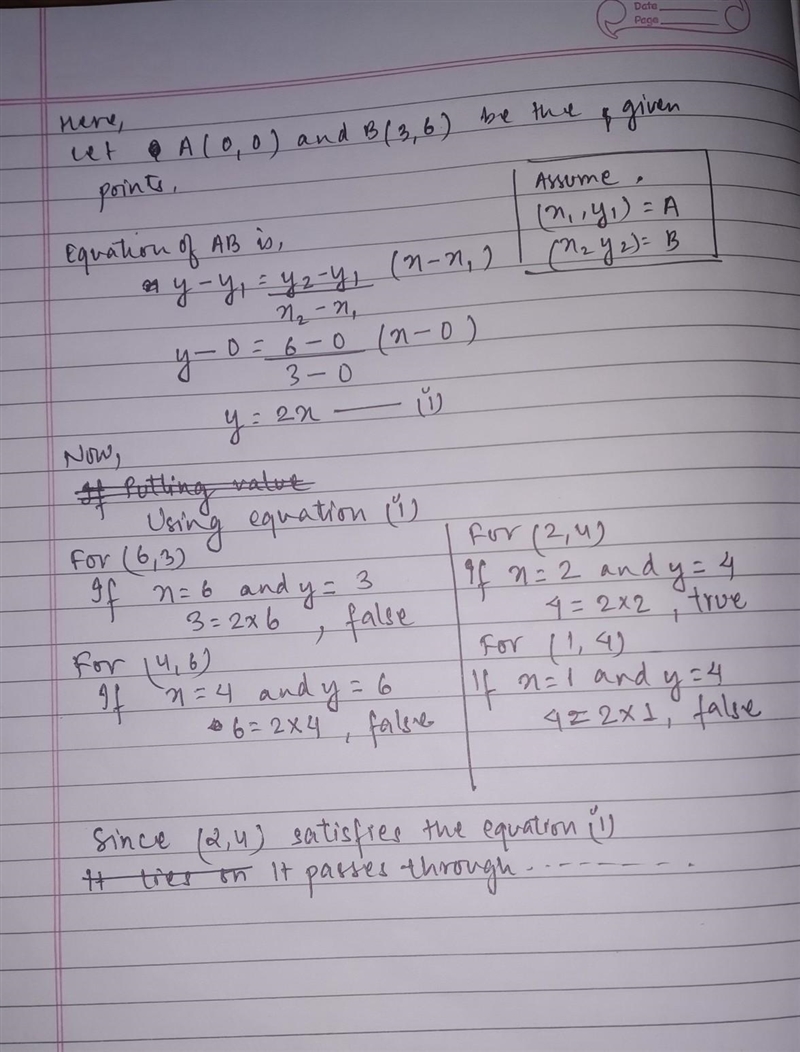 Date
Page
Here,
Let A(0,0) and B(3,6) be the given
points.
Assume.
(x₁,y₁) = A
(x₂ y₂) = B
Equation of AB is,
y-y₁ = y₂-y₁ / x₂-x₁ (x-x₁)
y-0 = 6-0 / 3-0 (x-0)
y = 2x — (i)
Now,
If Putting value
Using equation (i)
For (6,3)
If x=6 and y=3
3=2×6, false
For (4,6)
If x=4 and y=6
6=2×4, false
For (2,4)
If x=2 and y=4
4=2×2, true
For (1,4)
If x=1 and y=4
4=2×1, false
Since (2,4) satisfies the equation (i)
It lies on It passes through ..........